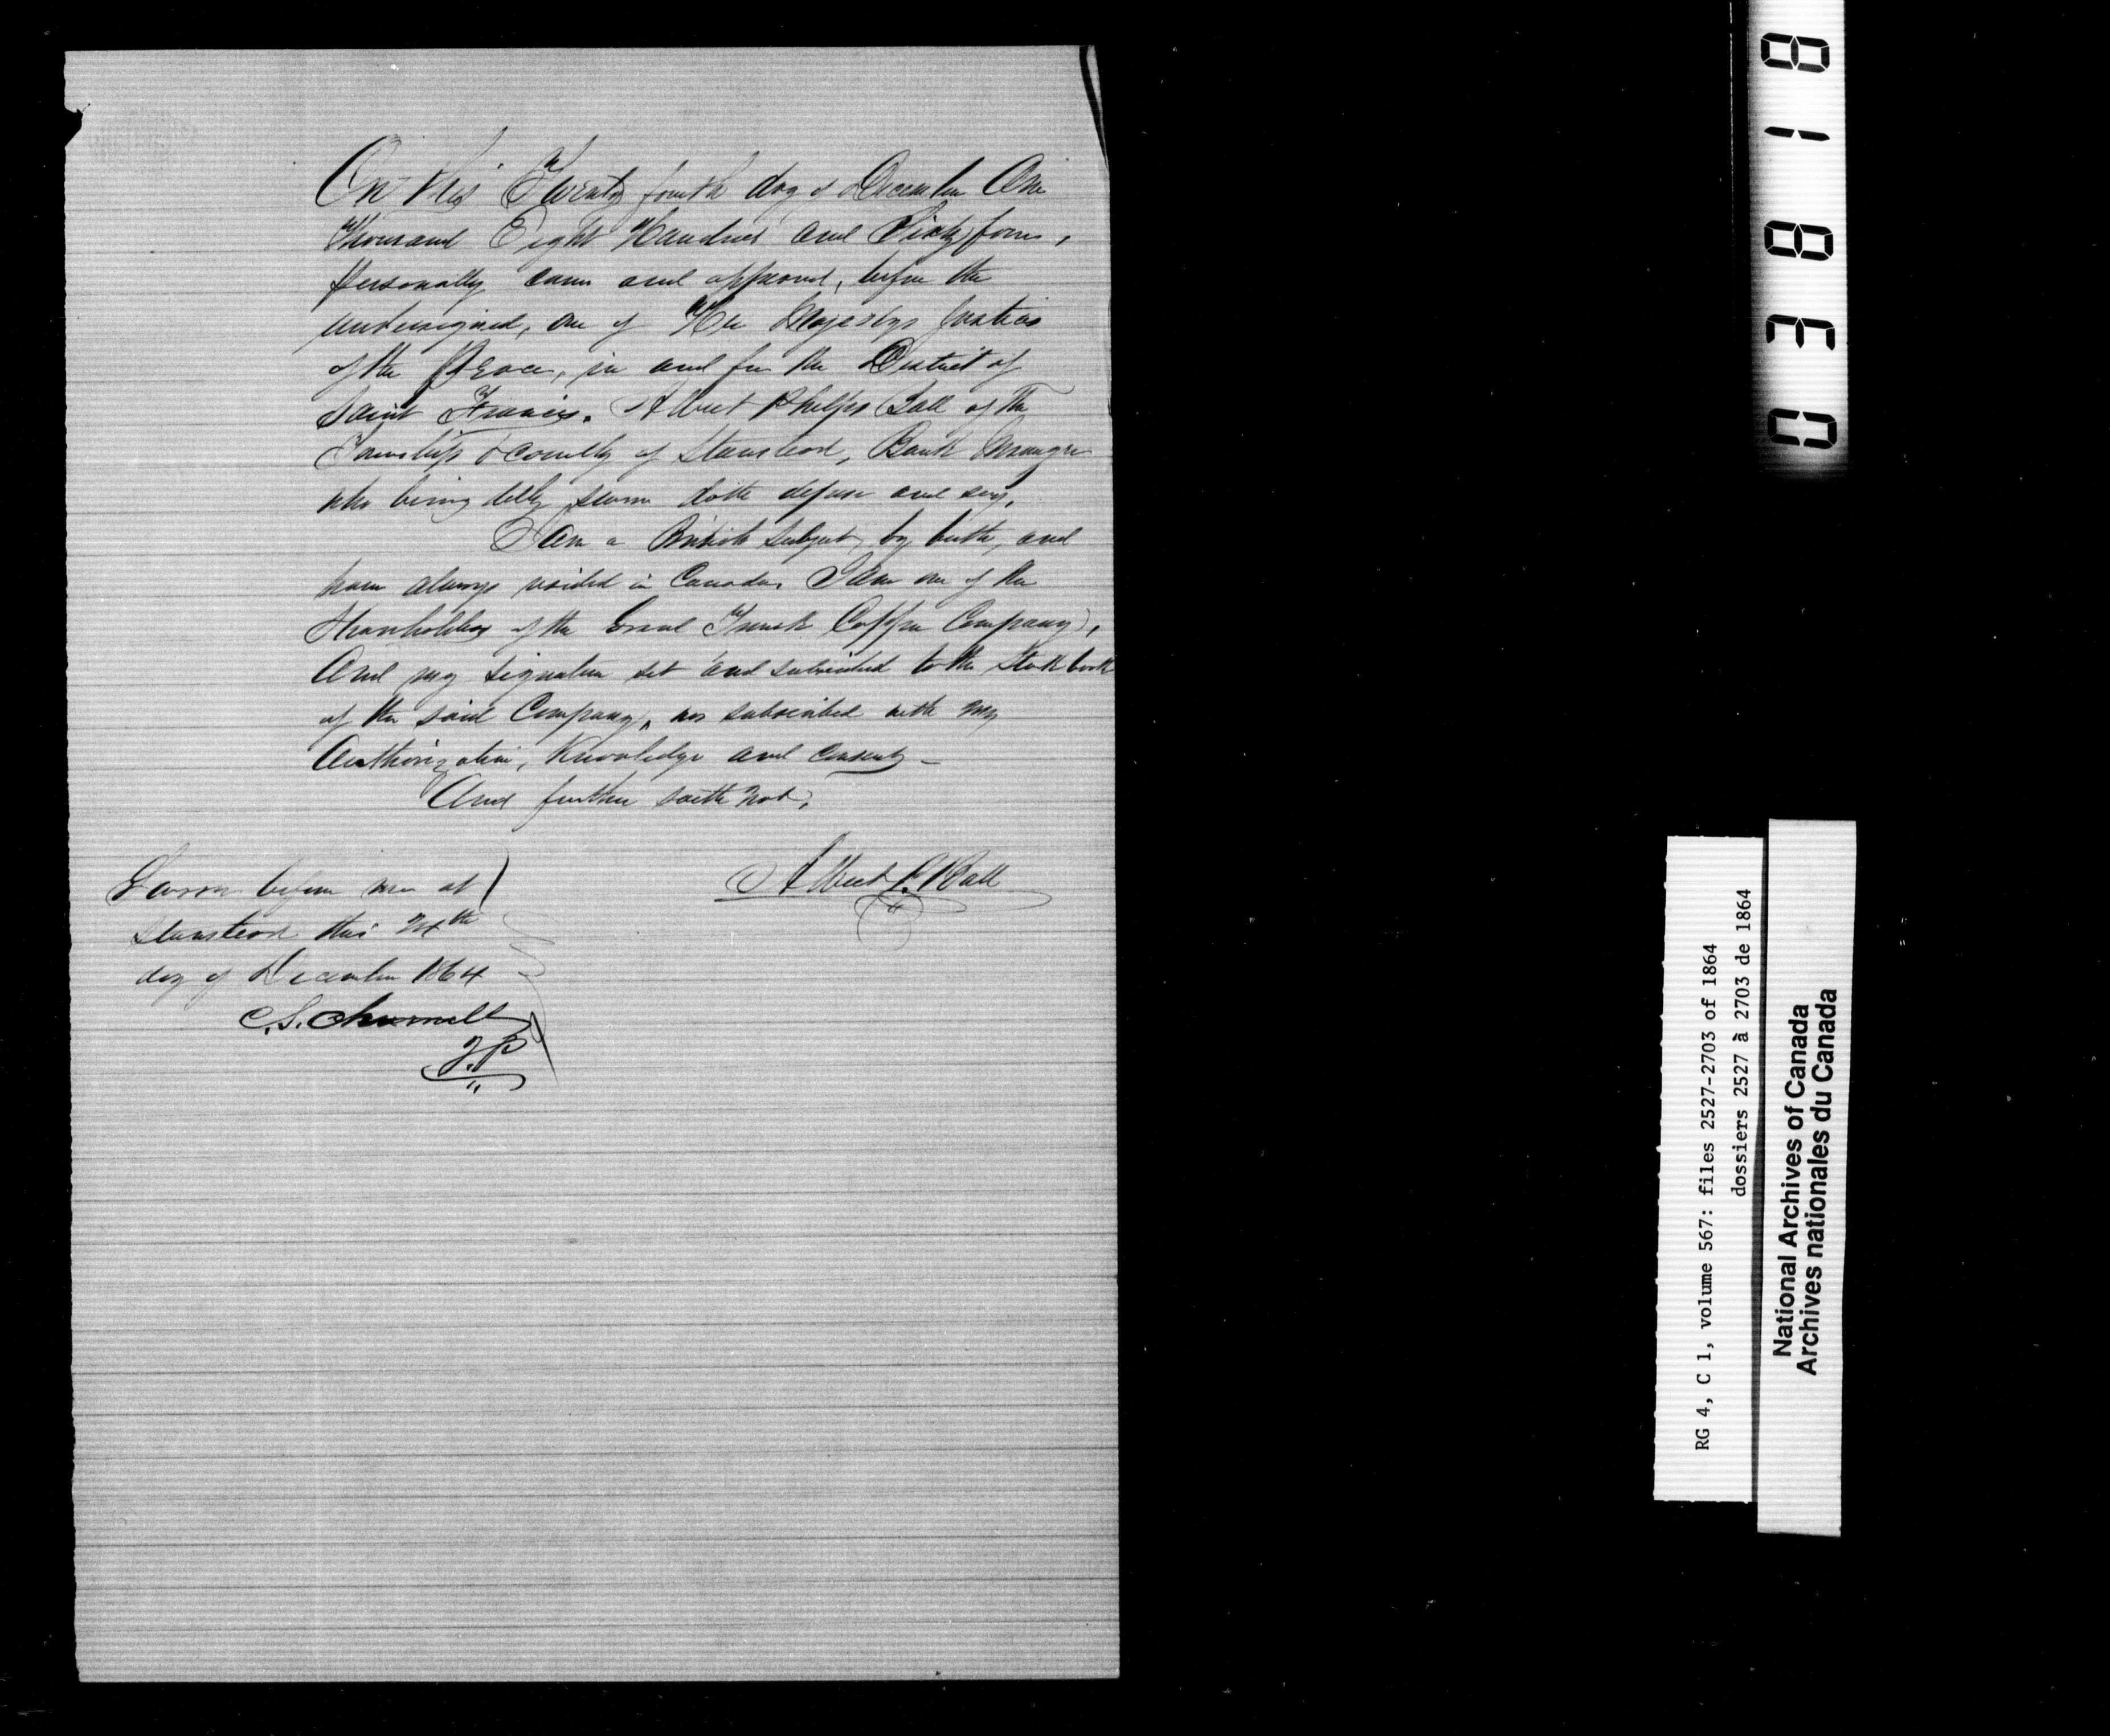 On this Twenty fourth day of December One
Thousand Eight Hundred and Sixty four,
personally came and appeared, before the
undersigned, one of Her Majestys Justices
of the Peace, in and for the District of
Saint Francis. Albert Phelps Ball of the
Township & County of Stanstead, Bank Manager
who being duly sworn doth depose and say,
I am a British Subject, by birth, and
have always resided in Canada, I am one of the
Shareholders of the Grand Trunk Copper Company,
And my signature set and subscribed to the Stock book
of the said Company, was subscribed with my
Authorization, Knowledge and consent –
And further saith not,
Sworn before me at
Stanstead this 24th
day of December 1864
C.S. Channell
J.P.
Albert P. Ball
03818
RG 4, C 1, volume 567: files 2527-2703 of 1864
dossiers 2527 à 2703 de 1864
National Archives of Canada
Archives nationales du Canada